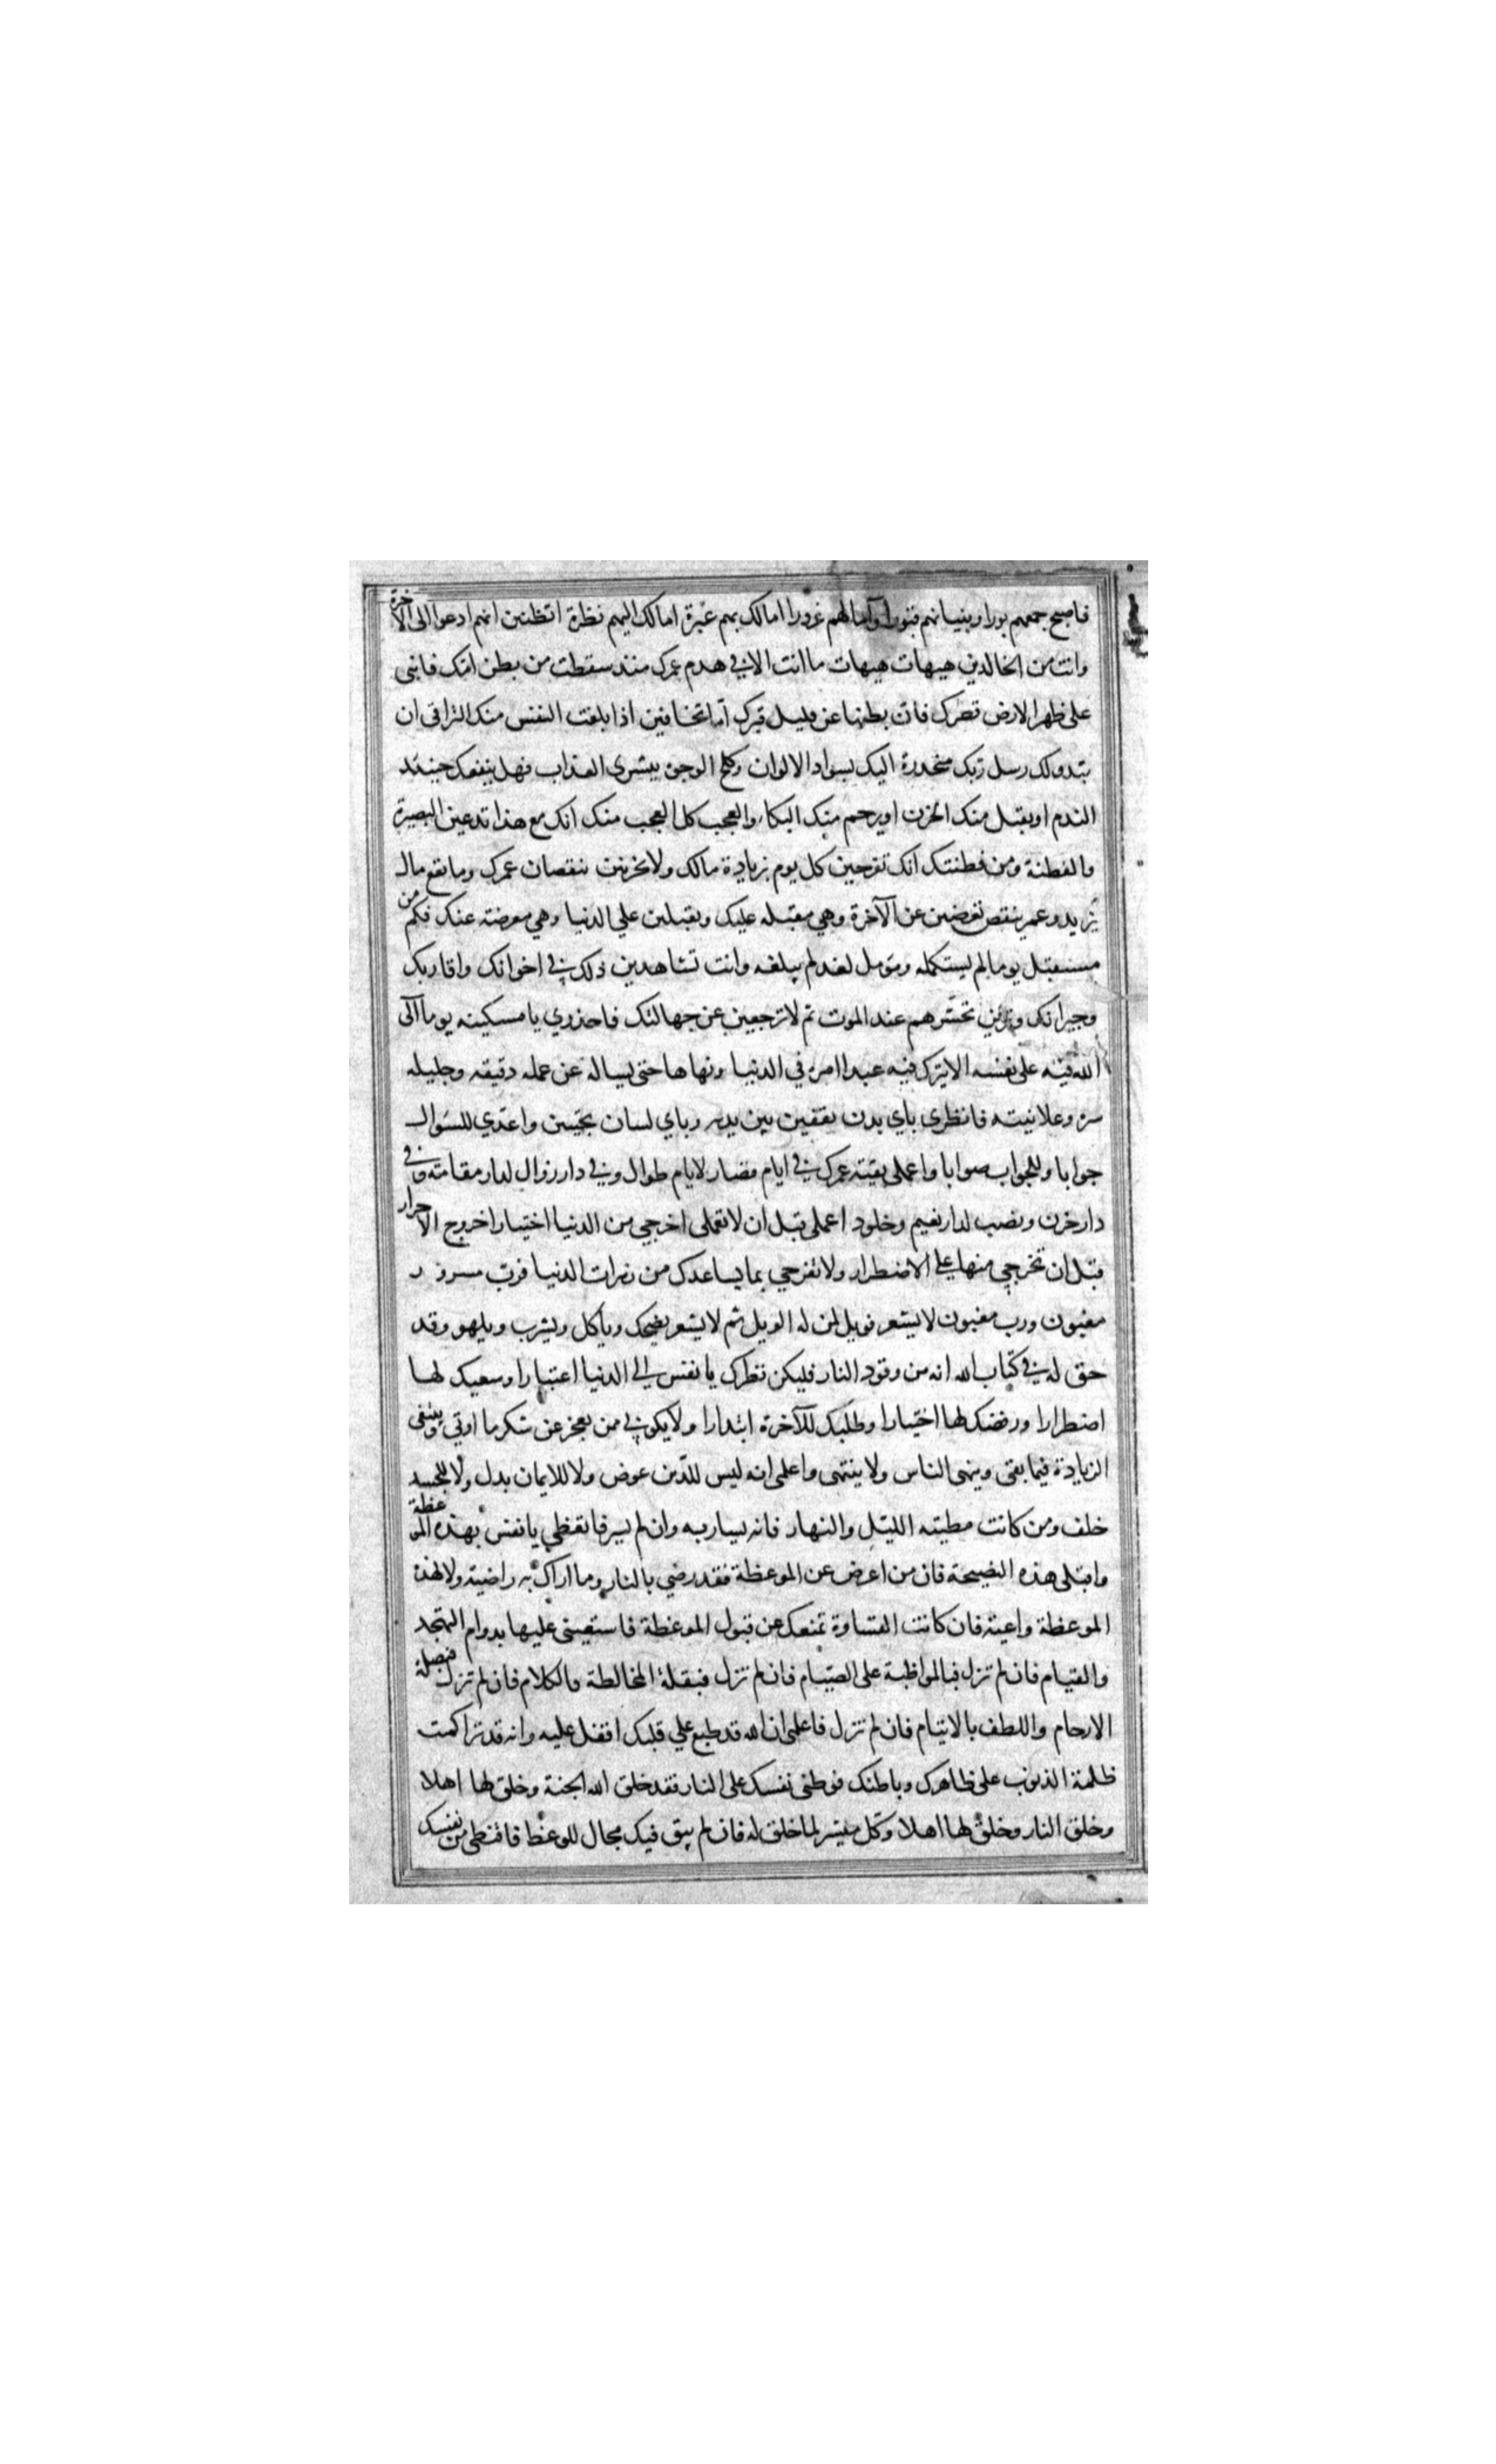 فاصبح جمعهم بورا وبنيانهم قبورا وآمالهم غرورا امالك بهم عبرة امالك اليهم نظرة اتظنين انهم ادعوا الى الآخرة
وانت من الخالدين هيهات هيهات ما انت الا في هدم عمرك منذ سقطت من بطن امك فابنى
على ظهر الارض قصرك فان بطنها عن قليل قبرك اما تخافين اذا بلغت النفس منك التراقى ان
تبدولك رسل ربك منحدرة اليك بسواد الالوان وكلح الوجوه ببشرى العذاب فهل ينفعك حينئذ
الندم او يقبل منك الحزن او يرحم منك البكاء والعجب كل العجب منك انك مع هذا تدعين البصيرة
والفطنة ومن فطنتك انك تفرحين كل يوم بزيادة مالك ولا تحزنين بنقصان عمرك وما نفع مال
يزيد وعمر ينقص تعرضين عن الآخرة وهي مقبله عليك وتقبلين علي الدنيا وهي معرضته عنك فكم من
مستقبل يوما لم يستكمله ومؤمل لغد لم يبلغه وانت تشاهدين ذلك في اخوانك واقاربك
وجيرانك وترين تحسرهم عند الموت ثم لا ترجعين عن جهالتك فاحذري يا مسكينه يوما آلى
الله فيه على نفسه الا يترك فيه عبدا امره في الدنيا ونهاها حتى يساله عن عمله دقيقه وجليله
سره وعلانيته فانظرى باي بدن تقفين بين يديه وباي لسان تجيبين واعدي للسوال
جوابا وللجواب صوابا واعملى بقيته عمرك في ايام قصار لايام طوال وفي دار زوال لدار مقامته وفي
دار حزن ونصب لدار نعيم وخلود اعملى قبل ان لا تعملى اخرجي من الدنيا اختيارا خروج الاحرار
قبل ان تخرجي منها على الاضطرار ولا تفرحي بما يساعدك من زهرات الدنيا فرب مسرور
مغبون ورب مغبون لا يشعر فويل لمن له الويل ثم لا يشعر يضحك وياكل ويشرب ويلهو وقد
حق له في كتاب الله انه من وقود النار فليكن نظرك يا نفس الى الدنيا اعتبارا وسعيك لها
اضطرارا ورفضك لها اختيارا وطلبك للآخرة ابتدارا ولا يكونى ممن يعجز عن شكر ما اوتي ويبتغى
الزيادة فيما بقى وينهى الناس ولا ينتهى واعلمى انه ليس للدين عوض ولا للايمان بدل ولا للجسد
خلف ومن كانت مطيته الليل والنهار فانه يسار به وان لم يسر فاتعظي يا نفس بهذه الموعظة
واقبلى هذه النصيحة فان من اعرض عن الموعظة فقد رضي بالنار وما اراك به راضيته ولا لهذه
الموعظة واعيته فان كانت القساوة تمنعك عن قبول الموعظة فاستعينى عليها بدوام التهجد
والقيام فان لم تزل فبالمواظبة على الصيام فان لم تزل فبقلة المخالطة والكلام فان لم تزل فبصلة
الارحام واللطف بالايتام فان لم تزل فاعلمى ان الله قد طبع علي قلبك اقفل عليه وانه قد تراكمت
ظلمة الذنوب على ظاهرك وباطنك فوطنى نفسك على النار فقد خلق الله الجنة وخلق لها اهلا
وخلق النار وخلق لها اهلا وكل ميسر لما خلق له فان لم يبق فيك مجال للوعظ فاقنطى من نفسك